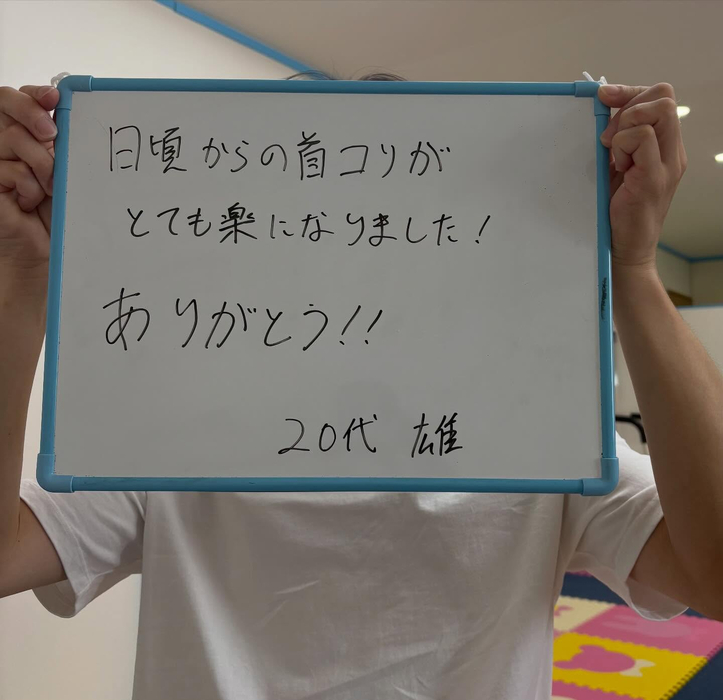 日頃からの首コリが
とても楽になりました!
ありがとう!!
20代 雄